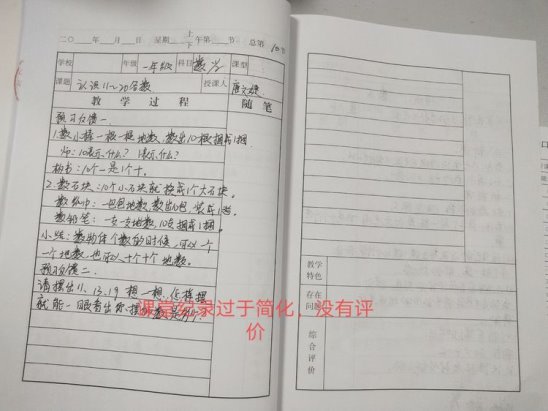 二〇 年 月 日 星期 上下 午第 节 总第 10 节
学校 年级 一年级 科目 数学 课型
课题 认识11~20各数 授课人 唐文雄
教学过程 随笔
预习反馈一
1.数小棒:一根一根地数,数出10根捆成1捆.
师:10表示什么? 1表示什么?
板书:10个一是1个十。
2.数石块:10个小石块就换成1个大石块。
数纸巾:一包一包地数,数出10包,装成1袋.
数铅笔:一支一支地数,10支捆成1捆。
小结:数物体个数的时候,可以一个
一个地数,也可以十个十个地数。
预习反馈二
请摆出11、13、19 想一想,怎样摆
就能一眼看出你摆的数是
课堂实录过于简化,没有评
价
教学特色
存在问题
综合评价